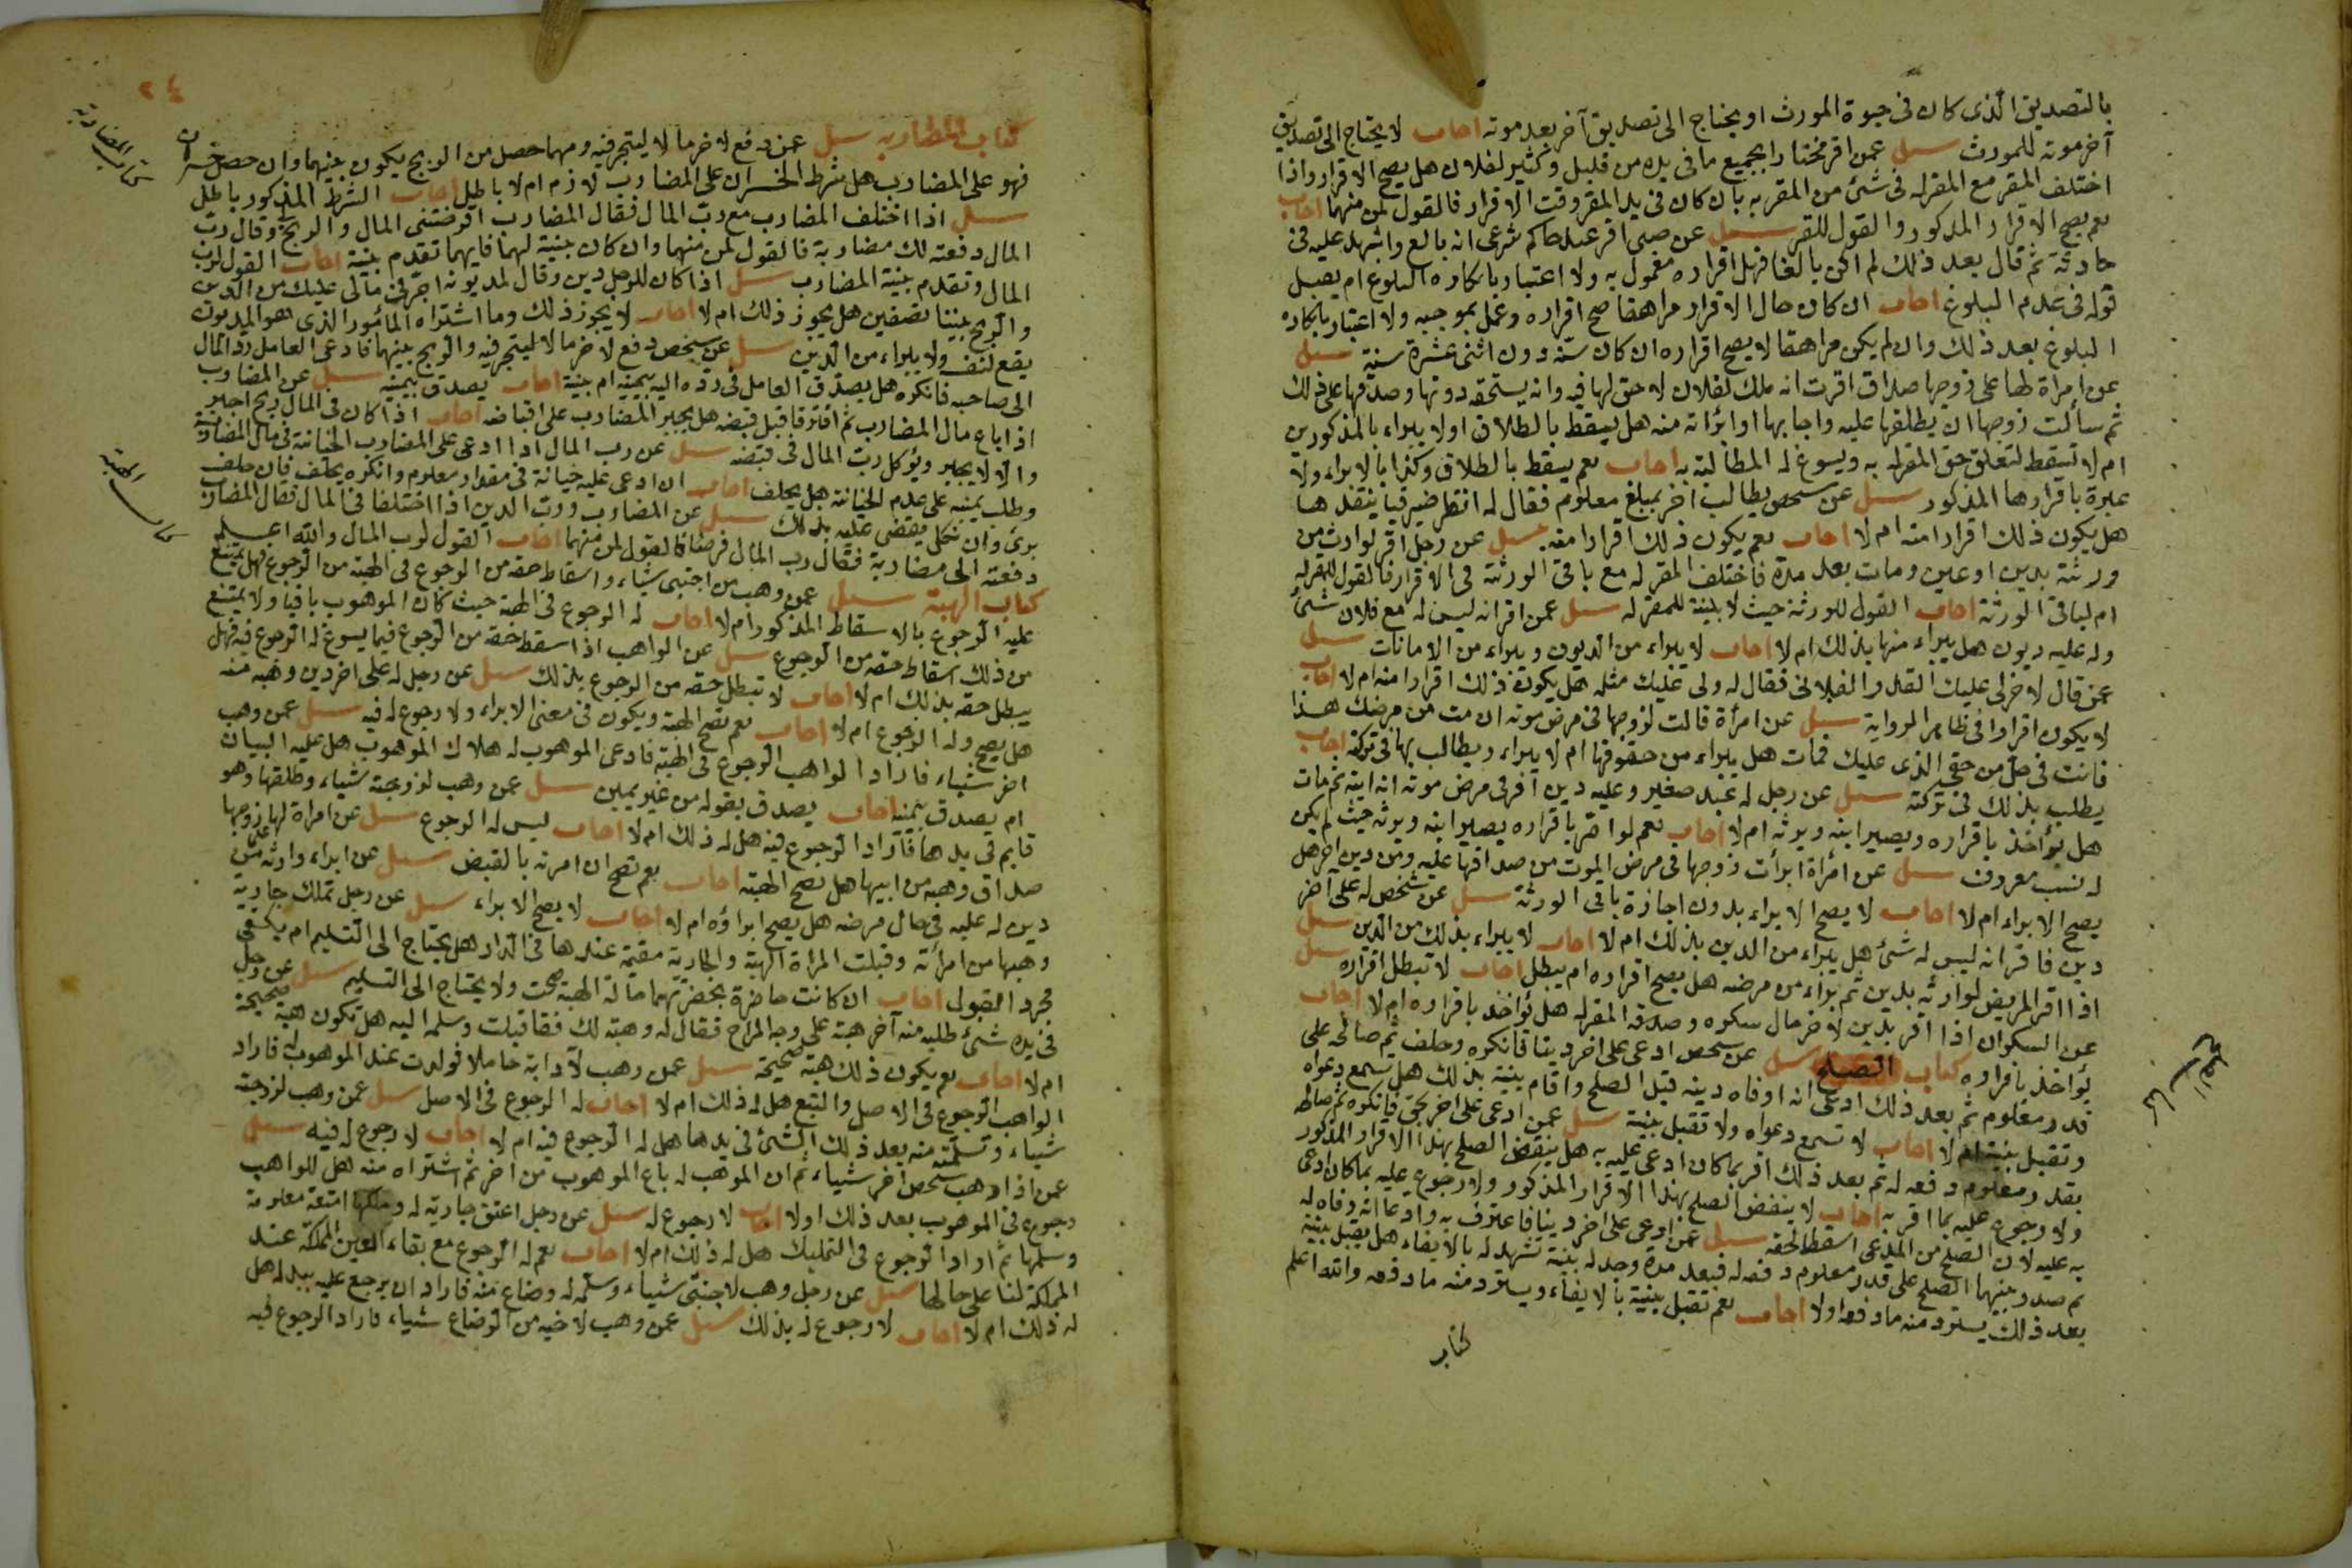 بالتصديق الذى كان فى حيوة المورث او يحتاج الى تصديق آخر بعد موته اجاب لا يحتاج الى تصديق
آخر موته للمورث سئل عمن اقر مختارا بجميع ما فى يده من قليل وكثير لفلان هل يصح الاقرار واذا
اختلف المقر مع المقرله فى شئ من المقر به بان كان فى يد المقر وقت الاقرار فالقول لمن منهما اجاب
نعم يصح الاقرار المذكور والقول للمقر سئل عن صبى اقر عند حاكم شرعى انه بالغ واشهد عليه فى
حادثة ثم قال بعد ذلك لم اكن بالغا فهل اقراره معمول به ولا اعتبار بانكاره البلوغ ام يقبل
قوله فى عدم البلوغ اجاب ان كان حال الاقرار مراهقا صح اقراره وعمل بموجبه ولا اعتبار بانكاره
البلوغ بعد ذلك وان لم يكن مراهقا لا يصح اقراره ان كان سنه دون اثنى عشرة سنة سئل
عن امراة لها على زوجها صداق اقرت انه ملك لفلان لا حق لها فيه وانه يستحقه دونها وصدقها على ذلك
ثم سألت زوجها ان يطلقها عليه واجابها او ابرأته منه هل يسقط بالطلاق اولا يبراء بالمذكورين
ام لا تسقط لتعلق حق المقرله به ويسوغ له المطالبة به اجاب نعم يسقط بالطلاق وكذا بالابراء ولا
عبرة باقرارها المذكور سئل عن شخص يطالب آخر بمبلغ معلوم فقال له انتظر ضيرفيا ينقدها
هل يكون ذلك اقرارا منه ام لا اجاب نعم يكون ذلك اقرارا منه سئل عن رجل اقر لوارث من
ورثته بدين او عين ومات بعد مدة فاختلف المقرله مع باقى الورثة فى الاقرار فالقول للمقرله
ام لباقى الورثة اجاب القول للورثة حيث لا بينة للمقرله سئل عمن اقر انه ليس له مع فلان شئ
وله عليه ديون هل يبراء منها بذلك ام لا اجاب لا يبراء من الديون ويبراء من الامانات سئل
عمن قال لاخر لى عليك القدر الفلانى فقال له ولى عليك مثله هل يكون ذلك اقرارا منه ام لا اجاب
لا يكون اقرارا فى ظاهر الرواية سئل عن امرأة قالت لزوجها فى مرض موته ان مت من مرضك هذا
فانت فى حل من حقى الذى عليك فمات هل يبراء من حقوقها ام لا يبراء ويطالب بها فى تركته اجاب
يطلب بذلك فى تركته سئل عن رجل له عبد صغير وعليه دين اقر فى مرض موته انه ابنه ثم مات
هل يؤاخذ باقراره ويصير ابنه ويرثه ام لا اجاب نعم لو اقر باقراره يصير ابنه ويرثه حيث لم يكن
له نسب معروف سئل عن امرأة ابرأت زوجها فى مرض الموت من صداقها عليه ومن دين اخر هل
يصح الابراء ام لا اجاب لا يصح الابراء بدون اجازة باقى الورثة سئل عن شخص له على آخر
دين فاقر انه ليس له شئ هل يبراء من الدين بذلك ام لا اجاب لا يبراء بذلك من الدين سئل
اذا اقر المريض لوارثه بدين ثم براء من مرضه هل يصح اقراره ام يبطل اجاب لا تبطل اقراره سئل
عن السكران اذا اقر بدين لاخر حال سكره وصدقه المقرله هل يؤاخذ باقراره ام لا اجاب
يؤاخذ باقراره كتاب الصلح سئل عن شخص ادعى على اخر دينا فانكره وحلف ثم صالحه على
قدر معلوم ثم بعد ذلك ادعى انه اوفاه دينه قبل الصلح واقام بينة بذلك هل تسمع دعواه
وتقبل بينته ام لا اجاب لا تسمع دعواه ولا تقبل بينة سئل عمن ادعى على اخر بحق فانكره ثم صالحه
بقدر معلوم دفعه له ثم بعد ذلك اقر بما كان ادعى عليه به هل ينقض الصلح بهذا الاقرار المذكور
ولا رجوع عليه بما اقر به اجاب لا ينقض الصلح بهذا الاقرار المذكور ولا رجوع عليه بما كان ادعى
به عليه لان الصلح من المدعى اسقط لحقه سئل عمن ادعى على اخر دينا فاعترف به وادعا انه وفاه له
ثم صدر بينهما الصلح على قدر معلوم دفعه له فبعد مدة وجد له بينة تشهد له بالايفاء هل يقبل بينة
بعد ذلك يسترد منه ما دفعه اولا اجاب نعم تقبل بينة بالايفاء ويسترد منه ما دفعه والله اعلم
كتاب
كتاب الصلح
٢٤
كتاب المضاربه سئل عمن دفع لاخر مالا ليتجر فيه ومهما حصل من الربح يكون بينهما وان حصل خسران
فهو على المضارب هل شرط الخسران على المضارب لازم ام لا باطل اجاب الشرط المذكور باطل
سئل اذا اختلف المضارب مع رب المال فقال المضارب اقرضتنى المال والربح وقال رب
المال دفعته لك مضاربة فالقول لمن منهما وان كان بينة لهما فايهما تقدم بينة اجاب القول لرب
المال وتقدم بينة المضارب سئل اذا كان للرجل دين وقال لمديونه اجر فى مالى عليك من الدين
والربح بيننا نصفين هل يجوز ذلك ام لا اجاب لا يجوز ذلك وما اشتراه المأمور الذى هو المديون
يقع لنفسه ولا يبراء من الدين سئل عن شخص دفع لاخر مالا ليتجر فيه والربح بينهما فادعى العامل رد المال
الى صاحبه فانكره هل يصدق العامل فى رده اليه بيمينه ام بينة اجاب يصدق بيمينه سئل عن المضارب
اذا باع مال المضارب ثم افترقا قبل قبضه هل يجبر المضارب على اقباضه اجاب اذا كان فى المال ربح اجبر
والا لا يجبر ويؤكل رب المال فى قبضه سئل عن رب المال اذا ادعى على المضارب الخيانة فى مال المضاربة
وطلب يمينه على عدم الخيانة هل يحلف اجاب ان ادعى عليه خيانة فى مقدار معلوم وانكره يحلف فان حلف
برئ وان نكل يقضى عليه بذلك سئل عن المضارب ورب الدين اذا اختلفا فى المال فقال المضارب
دفعته الى مضاربة فقال رب المال قرضا فالقول لمن منهما اجاب القول لرب المال والله اعلم
كتاب الهبة سئل عمن وهب من اجنبى شياء واسقاط حقه من الرجوع فى الهبة من الرجوع فهل يمتنع
عليه الرجوع بالاسقاط المذكور ام لا اجاب له الرجوع فى الهبة حيث كان الموهوب باقيا ولا يمتنع
من ذلك اسقاط حقه من الرجوع سئل عن الواهب اذا اسقط حقه من الرجوع فيما يسوغ له الرجوع فيه فهل
يبطل حقه بذلك ام لا اجاب لا تبطل حقه من الرجوع بذلك سئل عن رجل له على اخر دين وهبه منه
هل يصح وله الرجوع ام لا اجاب نعم تصح الهبة ويكون فى معنى الابراء ولا رجوع له فيه سئل عمن وهب
اخر شياء فاراد الواهب الرجوع فى الهبة فادعى الموهوب له هلاك الموهوب هل عليه البيان
ام يصدق بيمينه اجاب يصدق بقوله من غير يمين سئل عمن وهب لزوجته شياء وطلقها وهو
قايم فى يدها فاراد الرجوع فيه هل له ذلك ام لا اجاب ليس له الرجوع سئل عن امراة لها على زوجها
صداق وهبه من ابيها هل تصح الهبة اجاب نعم تصح ان امرته بالقبض سئل عن ابراء وارثه من
دين له عليه فى حال مرضه هل يصح ابراؤه ام لا اجاب لا يصح الابراء سئل عن رجل تملك جارية
وهبها من امرأته وقبلت المراة الهبة والجارية مقيمة عندها فى الدار هل يحتاج الى التسليم ام يكتفى
مجرد القبول اجاب ان كانت حاضرة بحضرتهما حالة الهبة صحت ولا يحتاج الى التسليم سئل عن رجل
فى يده شئ طلبه منه آخر هبة على وجه المزاح فقال له وهبته لك فقا قبلت وسلمه اليه هل تكون هبة صحيحة
ام لا اجاب نعم يكون ذلك هبة صحيحة سئل عمن وهب لآ دابة حاملا فولدت عند الموهوب له فاراد
الواهب الرجوع فى الاصل والتبع هل له ذلك ام لا اجاب له الرجوع فى الاصل سئل عمن وهب لزوجته
شياء وتسلمته منه بعد ذلك الشئ فى يدها هل له الرجوع فيه ام لا اجاب لا رجوع له فيه سئل
عمن اذا وهب شخص اخر شياء ثم ان الموهب له باع الموهوب من اخر ثم اشتراه منه هل للواهب
رجوع فى الموهوب بعد ذلك اولا اجاب لا رجوع له سئل عن رجل اعتق جارية له وملكها امتعة معلومة
وسلمها ثم اراد الرجوع فى التمليك هل له ذلك ام لا اجاب نعم له الرجوع مع بقاء العين المملكة عند
المملكة لنا على حالها سئل عن رجل وهب لاجنبى شياء وسلمه له وضاع منه فاراد ان يرجع عليه ببدله هل
له ذلك ام لا اجاب لا رجوع له بذلك سئل عمن وهب لاخيه من الرضاع شياء فاراد الرجوع فيه
كتاب المضاربة
كتاب الهبة